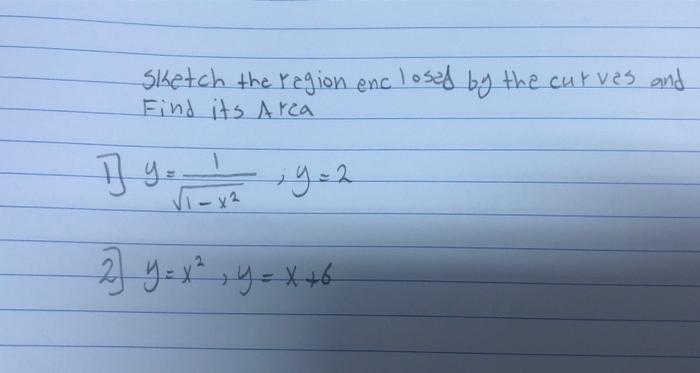 Sketch the region enclosed by the curves and
Find its Area
1] y = 1/√(1-x²) , y = 2
2] y = x² , y = x + 6